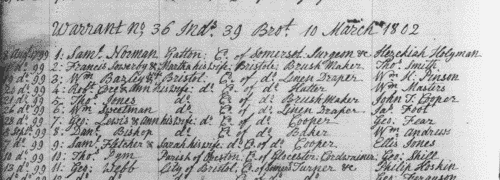 Warrant No. 36 Inds. 39 Brot. 10 March 1802
99 1: Saml. Norman Yatton Co. of Somerset Surgeon & Hezekiah Holyman
do. 99 2: Francis & Martha his wife Bristol Brush Maker Thos. Smith
do. 99 3: Wm. Bazley Bristol Co. of do. Linen Draper Wm. K. Pinson
do. 99 4: Robt. & Ann his wife do. Co. of do. Hatter Wm. Masters
do. 99 5: Thos. Jones do. Co. of do. Brush Maker John T. Cooper
do. 99 6: Wm. do. Co. of do. Linen Draper Jas. Foot
do. 99 7: Geo: Lewis & Ann his wife do. Co. of do. Cooper Geo: Fear
99 8: Danl. Bishop do. Co. of do. Baker Wm. Andrews
do. 99 9: Saml. Fletcher & Sarah his wife do. Co. of do. Cooper Ellis Jones
do. 99 10: Thos. Pym Parish of Co. of Glocester Cordwainer Geo: Shill
do. 99 11: Geo: Webb City of Bristol Co. of Turner &c. Philip Hoskin
99 Geo: Ferguson